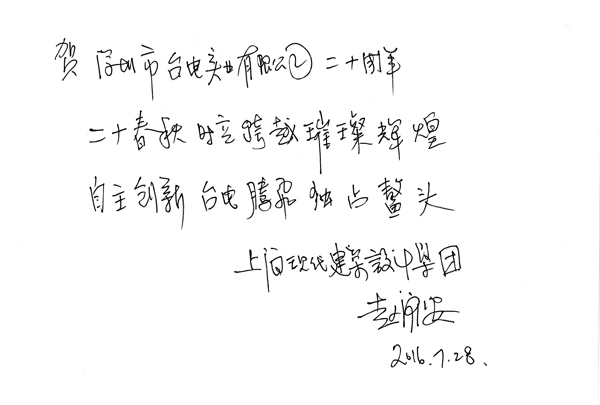 贺 深圳市台电实业有限公司 二十周年
二十春秋时空跨越璀璨辉煌
自主创新台电腾飞独占鳌头
上海现代建筑设计集团
赵济安
2016.7.28.